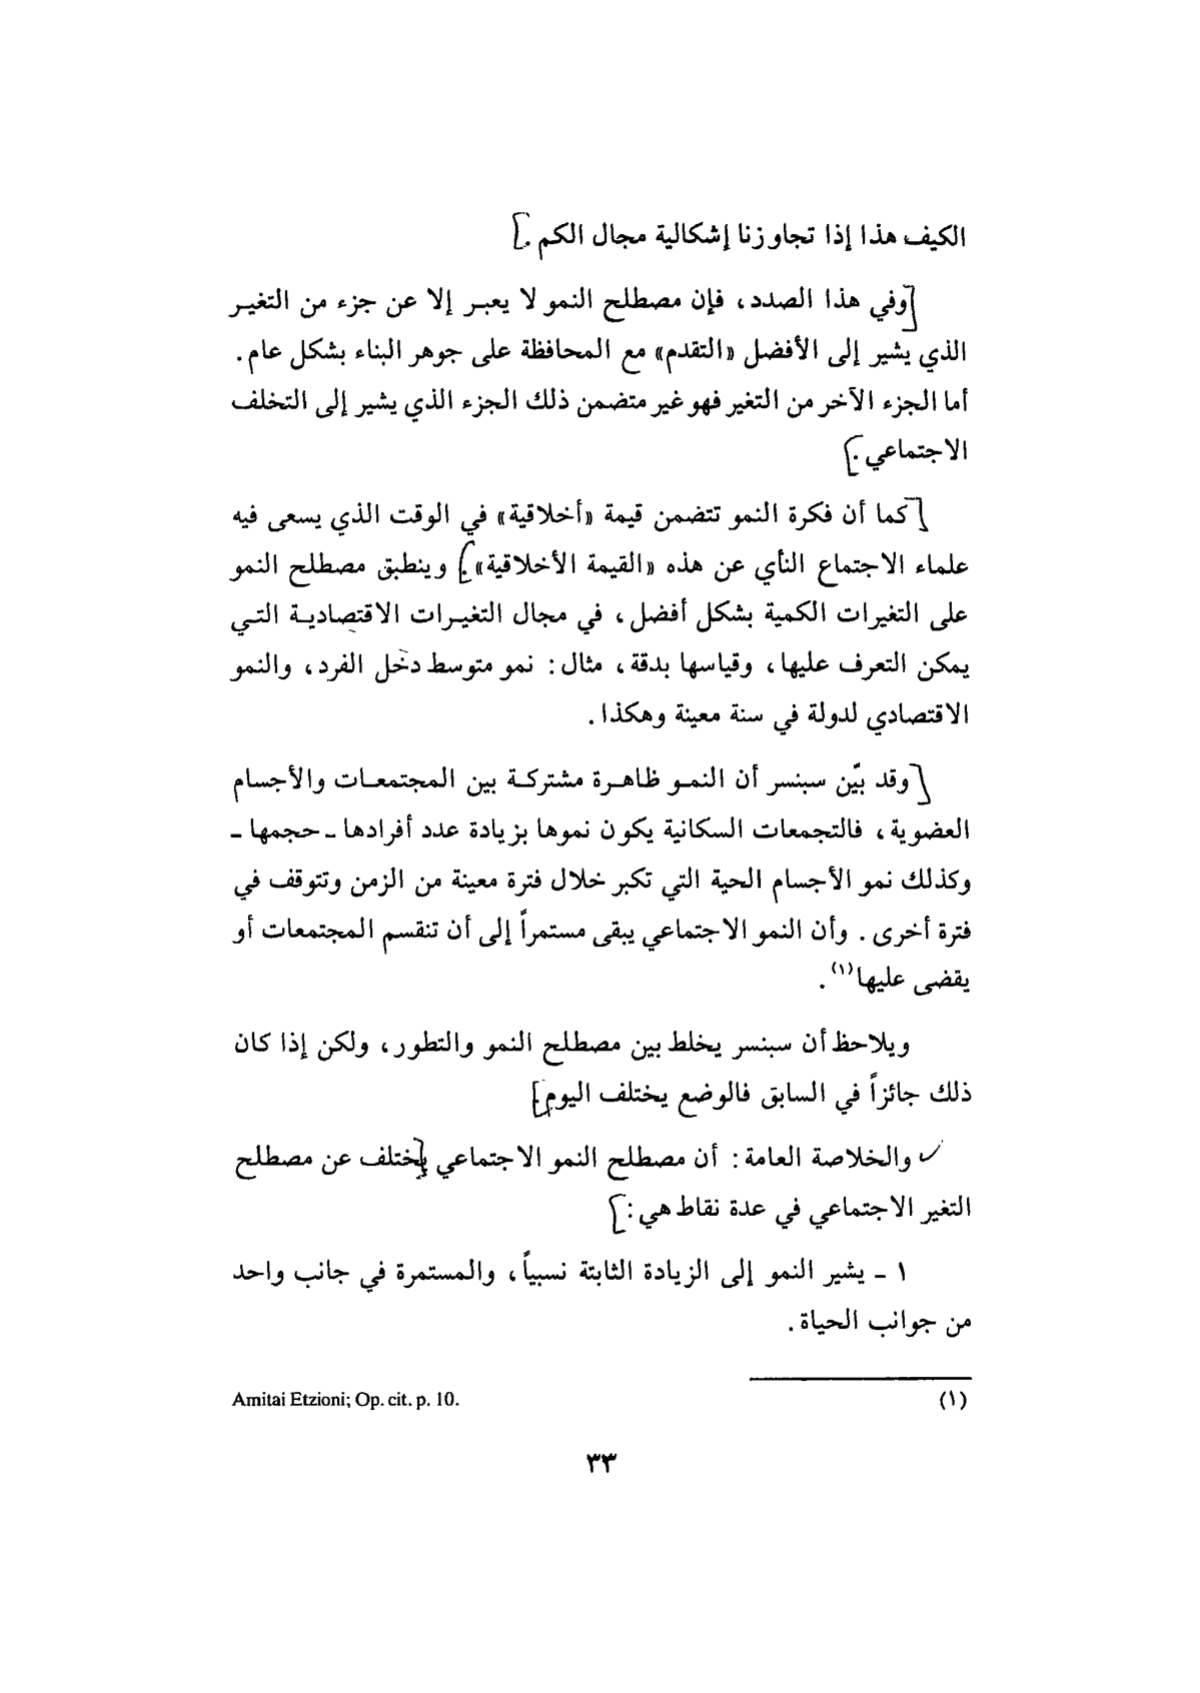 الكيف هذا إذا تجاوزنا إشكالية مجال الكم .
وفي هذا الصدد، فإن مصطلح النمو لا يعبر إلا عن جزء من التغير
الذي يشير إلى الأفضل «التقدم» مع المحافظة على جوهر البناء بشكل عام .
أما الجزء الآخر من التغير فهو غير متضمن ذلك الجزء الذي يشير إلى التخلف
الاجتماعي .
كما أن فكرة النمو تتضمن قيمة «أخلاقية» في الوقت الذي يسعى فيه
علماء الاجتماع النأي عن هذه «القيمة الأخلاقية». وينطبق مصطلح النمو
على التغيرات الكمية بشكل أفضل، في مجال التغيرات الاقتصادية التي
يمكن التعرف عليها، وقياسها بدقة، مثال: نمو متوسط دخل الفرد، والنمو
الاقتصادي لدولة في سنة معينة وهكذا .
وقد بيّن سبنسر أن النمو ظاهرة مشتركة بين المجتمعات والأجسام
العضوية، فالتجمعات السكانية يكون نموها بزيادة عدد أفرادها ـ حجمها ـ
وكذلك نمو الأجسام الحية التي تكبر خلال فترة معينة من الزمن وتتوقف في
فترة أخرى . وأن النمو الاجتماعي يبقى مستمراً إلى أن تنقسم المجتمعات أو
يقضى عليها(١) .
ويلاحظ أن سبنسر يخلط بين مصطلح النمو والتطور، ولكن إذا كان
ذلك جائزاً في السابق فالوضع يختلف اليوم.
والخلاصة العامة: أن مصطلح النمو الاجتماعي يختلف عن مصطلح
التغير الاجتماعي في عدة نقاط هي:
١ ـ يشير النمو إلى الزيادة الثابتة نسبياً، والمستمرة في جانب واحد
من جوانب الحياة .
(١) Amitai Etzioni; Op. cit. p. 10.
٣٣